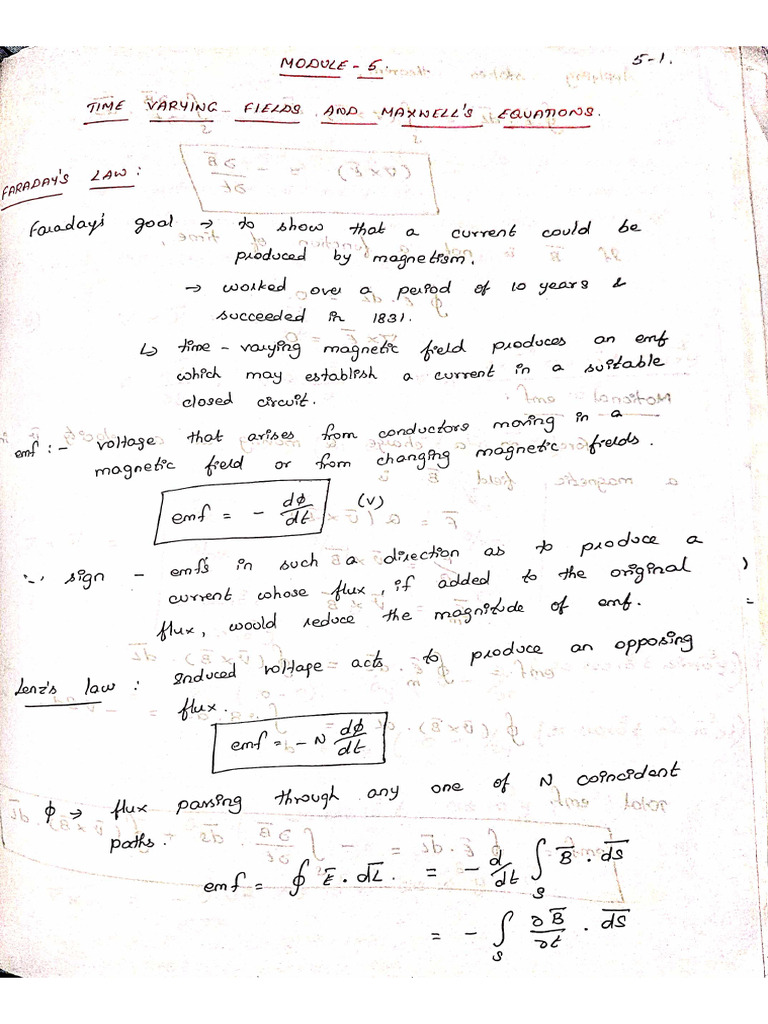 MODULE - 5.
5-1.
TIME VARYING FIELDS AND MAXWELL'S EQUATIONS.
FARADAY'S LAW :
Faraday's goal → to show that a current could be
produced by magnetism.
→ worked over a period of 10 years &
succeeded in 1831.
↳ time - varying magnetic field produces an emf
which may establish a current in a suitable
closed circuit.
emf : - voltage that arises from conductors moving in a
magnetic field or from changing magnetic fields.
emf = - dϕ/dt (V)
'-' sign - emf is in such a direction as to produce a
current whose flux, if added to the original
flux, would reduce the magnitude of emf.
Lenz's law : Induced voltage acts to produce an opposing
flux.
emf = - N dϕ/dt
ϕ → flux passing through any one of N coincident
paths.
emf = ∮ E̅ . d̅L̅. = - d/dt ∫_S B̅ . d̅S̅
= - ∫_S ∂B̅/∂t . d̅S̅